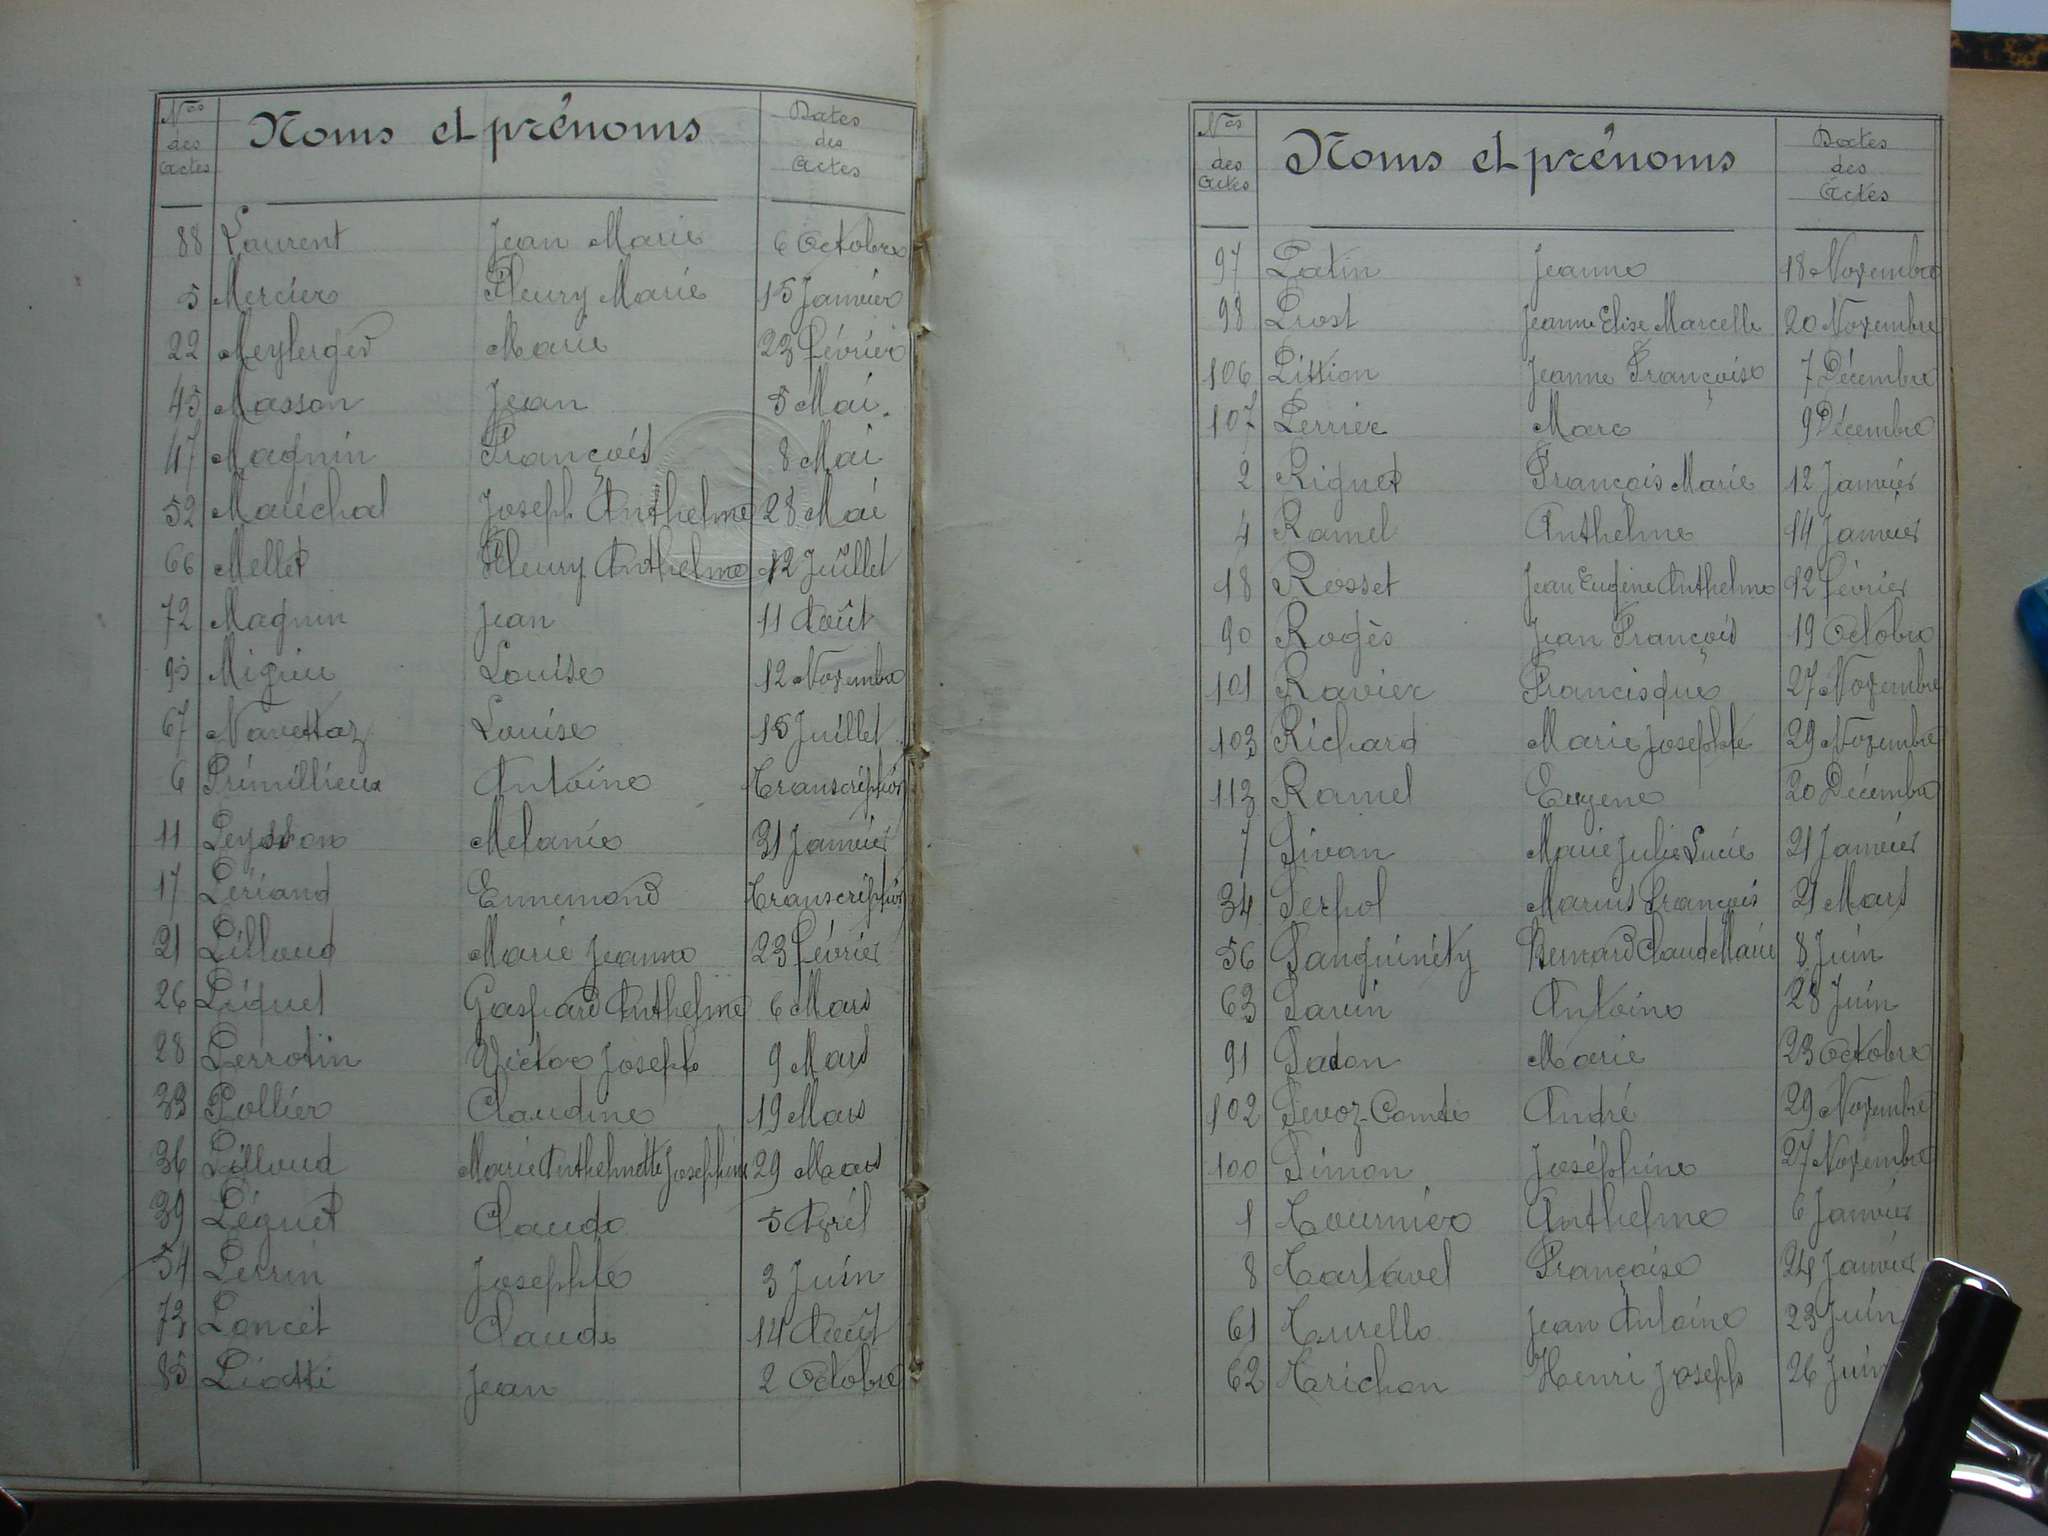 Nos des Actes Noms et prénoms Dates des Actes
88 Laurent Jean Marie 6 Octobre
5 Mercier Fleury Marie 15 Janvier
22 Meylerger Marie 23 Février
45 Masson Jean 5 Mai.
47 Magnin François 8 Mai
52 Maréchal Joseph Anthelme 28 Mai
66 Mellet Fleury Anthelme 12 Juillet
72 Magnin Jean 11 Août
95 Migieu Louise 12 Novembre
67 Navettaz Louise 15 Juillet
6 Primillieux Antoine Transcription
11 Peysson Melanie 31 Janvier
17 Périand Ennemond Transcription
21 Pilloud Marie Jeanne 23 Février
26 Piquet Gaspard Anthelme 6 Mars
28 Perrotin Victor Joseph 9 Mars
33 Pollier Claudine 19 Mars
36 Pilloud Marie Anthelmette Josephine 29 Mars
39 Péguet Claude 5 Avril
54 Perrin Josephte 3 Juin
73 Poncet Claude 14 Août
85 Piotti Jean 2 Octobre
Nos des Actes Noms et prénoms Dates des Actes
97 Patin Jeanne 18 Novembre
98 Prost Jeanne Elise Marcelle 20 Novembre
106 Pission Jeanne Françoise 7 Décembre
107 Perrier Marc 9 Décembre
2 Riguet François Marie 12 Janvier
4 Ramel Anthelme 14 Janvier
18 Rosset Jean Eugène Anthelme 12 Février
90 Rogès Jean François 19 Octobre
101 Ravier Francisque 27 Novembre
103 Richard Marie Josephte 29 Novembre
113 Ramel Eugene 20 Décembre
7 Sivan Marie Julie Lucie 21 Janvier
34 Serpol Marius François 21 Mars
56 Sanguinéty Bernard Claude Marie 8 Juin
63 Savin Antoine 28 Juin
91 Sadon Marie 23 Octobre
102 Sevoz-Comte André 29 Novembre
100 Simon Joséphine 27 Novembre
1 Tournier Anthelme 6 Janvier
8 Tartavel Françoise 24 Janvier
61 Turello Jean Antoine 23 Juin
62 Trichon Henri Joseph 26 Juin